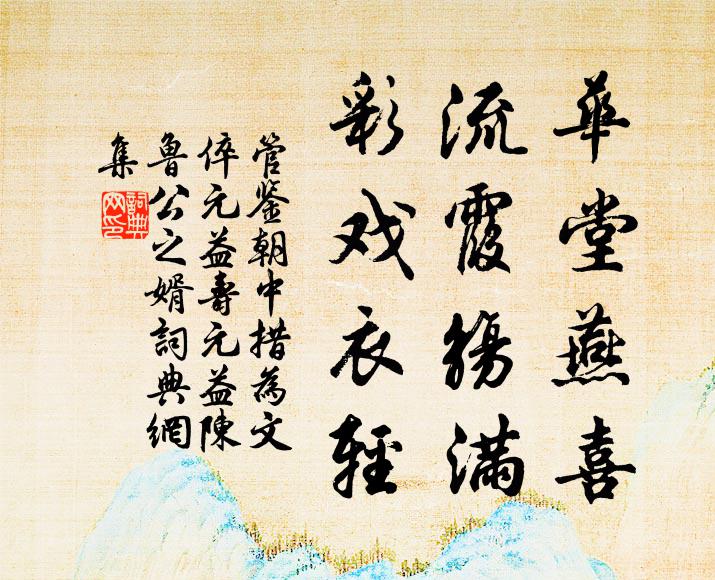 華堂燕喜
流霞觴滿
彩戏衣輕
管鉴朝中措為文
倅元益壽元益陳
魯公之婿詞典網
集
詞典
网印